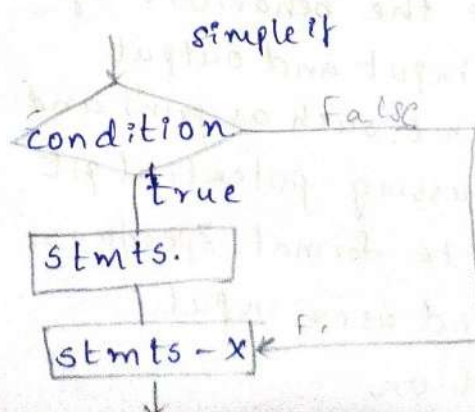 simple if
condition
False
true
stmts.
stmts - x
F.